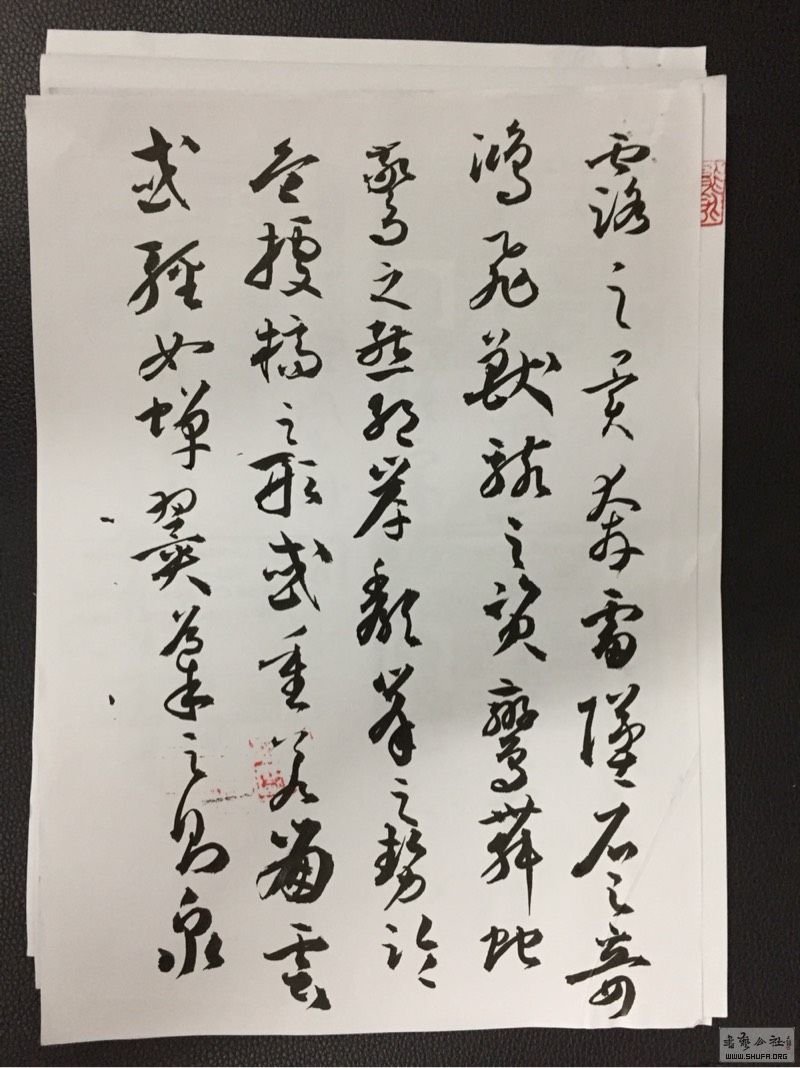 露之異奔雷墜石之奇
鴻飛獸駭之資鸞舞蛇
驚之態絕岸頹峯之勢臨
危據槁之形或重若崩雲
或輕如蟬翼導之則泉
書藝公社
WWW.SHUFA.ORG